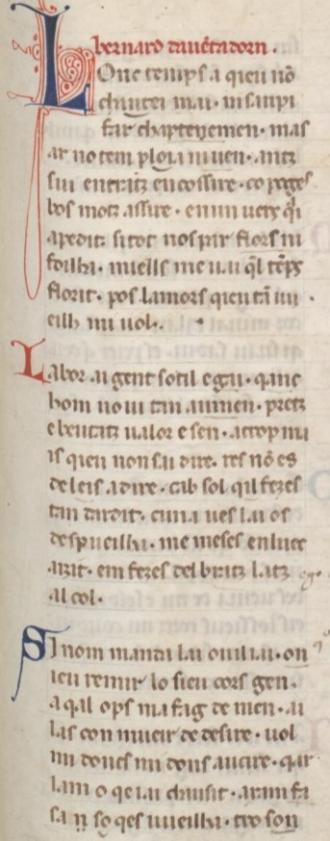 bernard dauẽtadorn.
Lonc temps a qieu nõ
chantei mai. ni saupi
far chaptenemen. mas
ar no tem ploia ni uen. antz
sui entratz en cossire. co poges
bos motz assire. en un uers q̃i
apedit. sitot nos par flors ni
foilha. miells me uai q̃l tẽps
florit. pos lamors qieu tã uu
eilh mi uol.
Labor ai gent sotil e gai. qanc
hom no ui tan auinen. pretz
e beutatz ualor e sen. a trop mi
is qieu non sai dire. res nõ es
de leis a dire. cab sol qil fezes
tan dardit. cuna ues lai os
despueilha. me meses en luec
aizit. em fezes del bratz latz
al col.
Si nom manda lai on ilh iai. on
ieu remir lo sieu cors gen.
a qal ops ma fag de men. ai
las con mueir de desire. uol
mi doncs mi dons aucire. qar
lam o qe lai chausit. aram fa
sa so qes uueilha. tro son